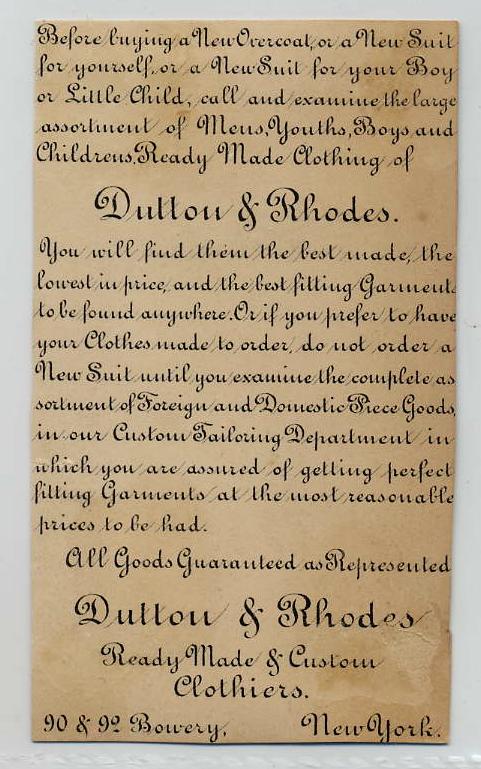 Before buying a New Overcoat, or a New Suit
for yourself, or a New Suit for your Boy
or Little Child, call and examine the large
assortment of Mens, Youths, Boys and
Childrens, Ready Made Clothing of
Dutton & Rhodes.
You will find them the best made, the
lowest in price, and the best fitting Garments
to be found anywhere. Or if you prefer to have
your Clothes made to order, do not order a
New Suit until you examine the complete as
sortment of Foreign and Domestic Piece Goods,
in our Custom Tailoring Department in
which you are assured of getting perfect
fitting Garments at the most reasonable
prices to be had.
All Goods Guaranteed as Represented
Dutton & Rhodes
Ready Made & Custom
Clothiers.
90 & 92 Bowery, New York.